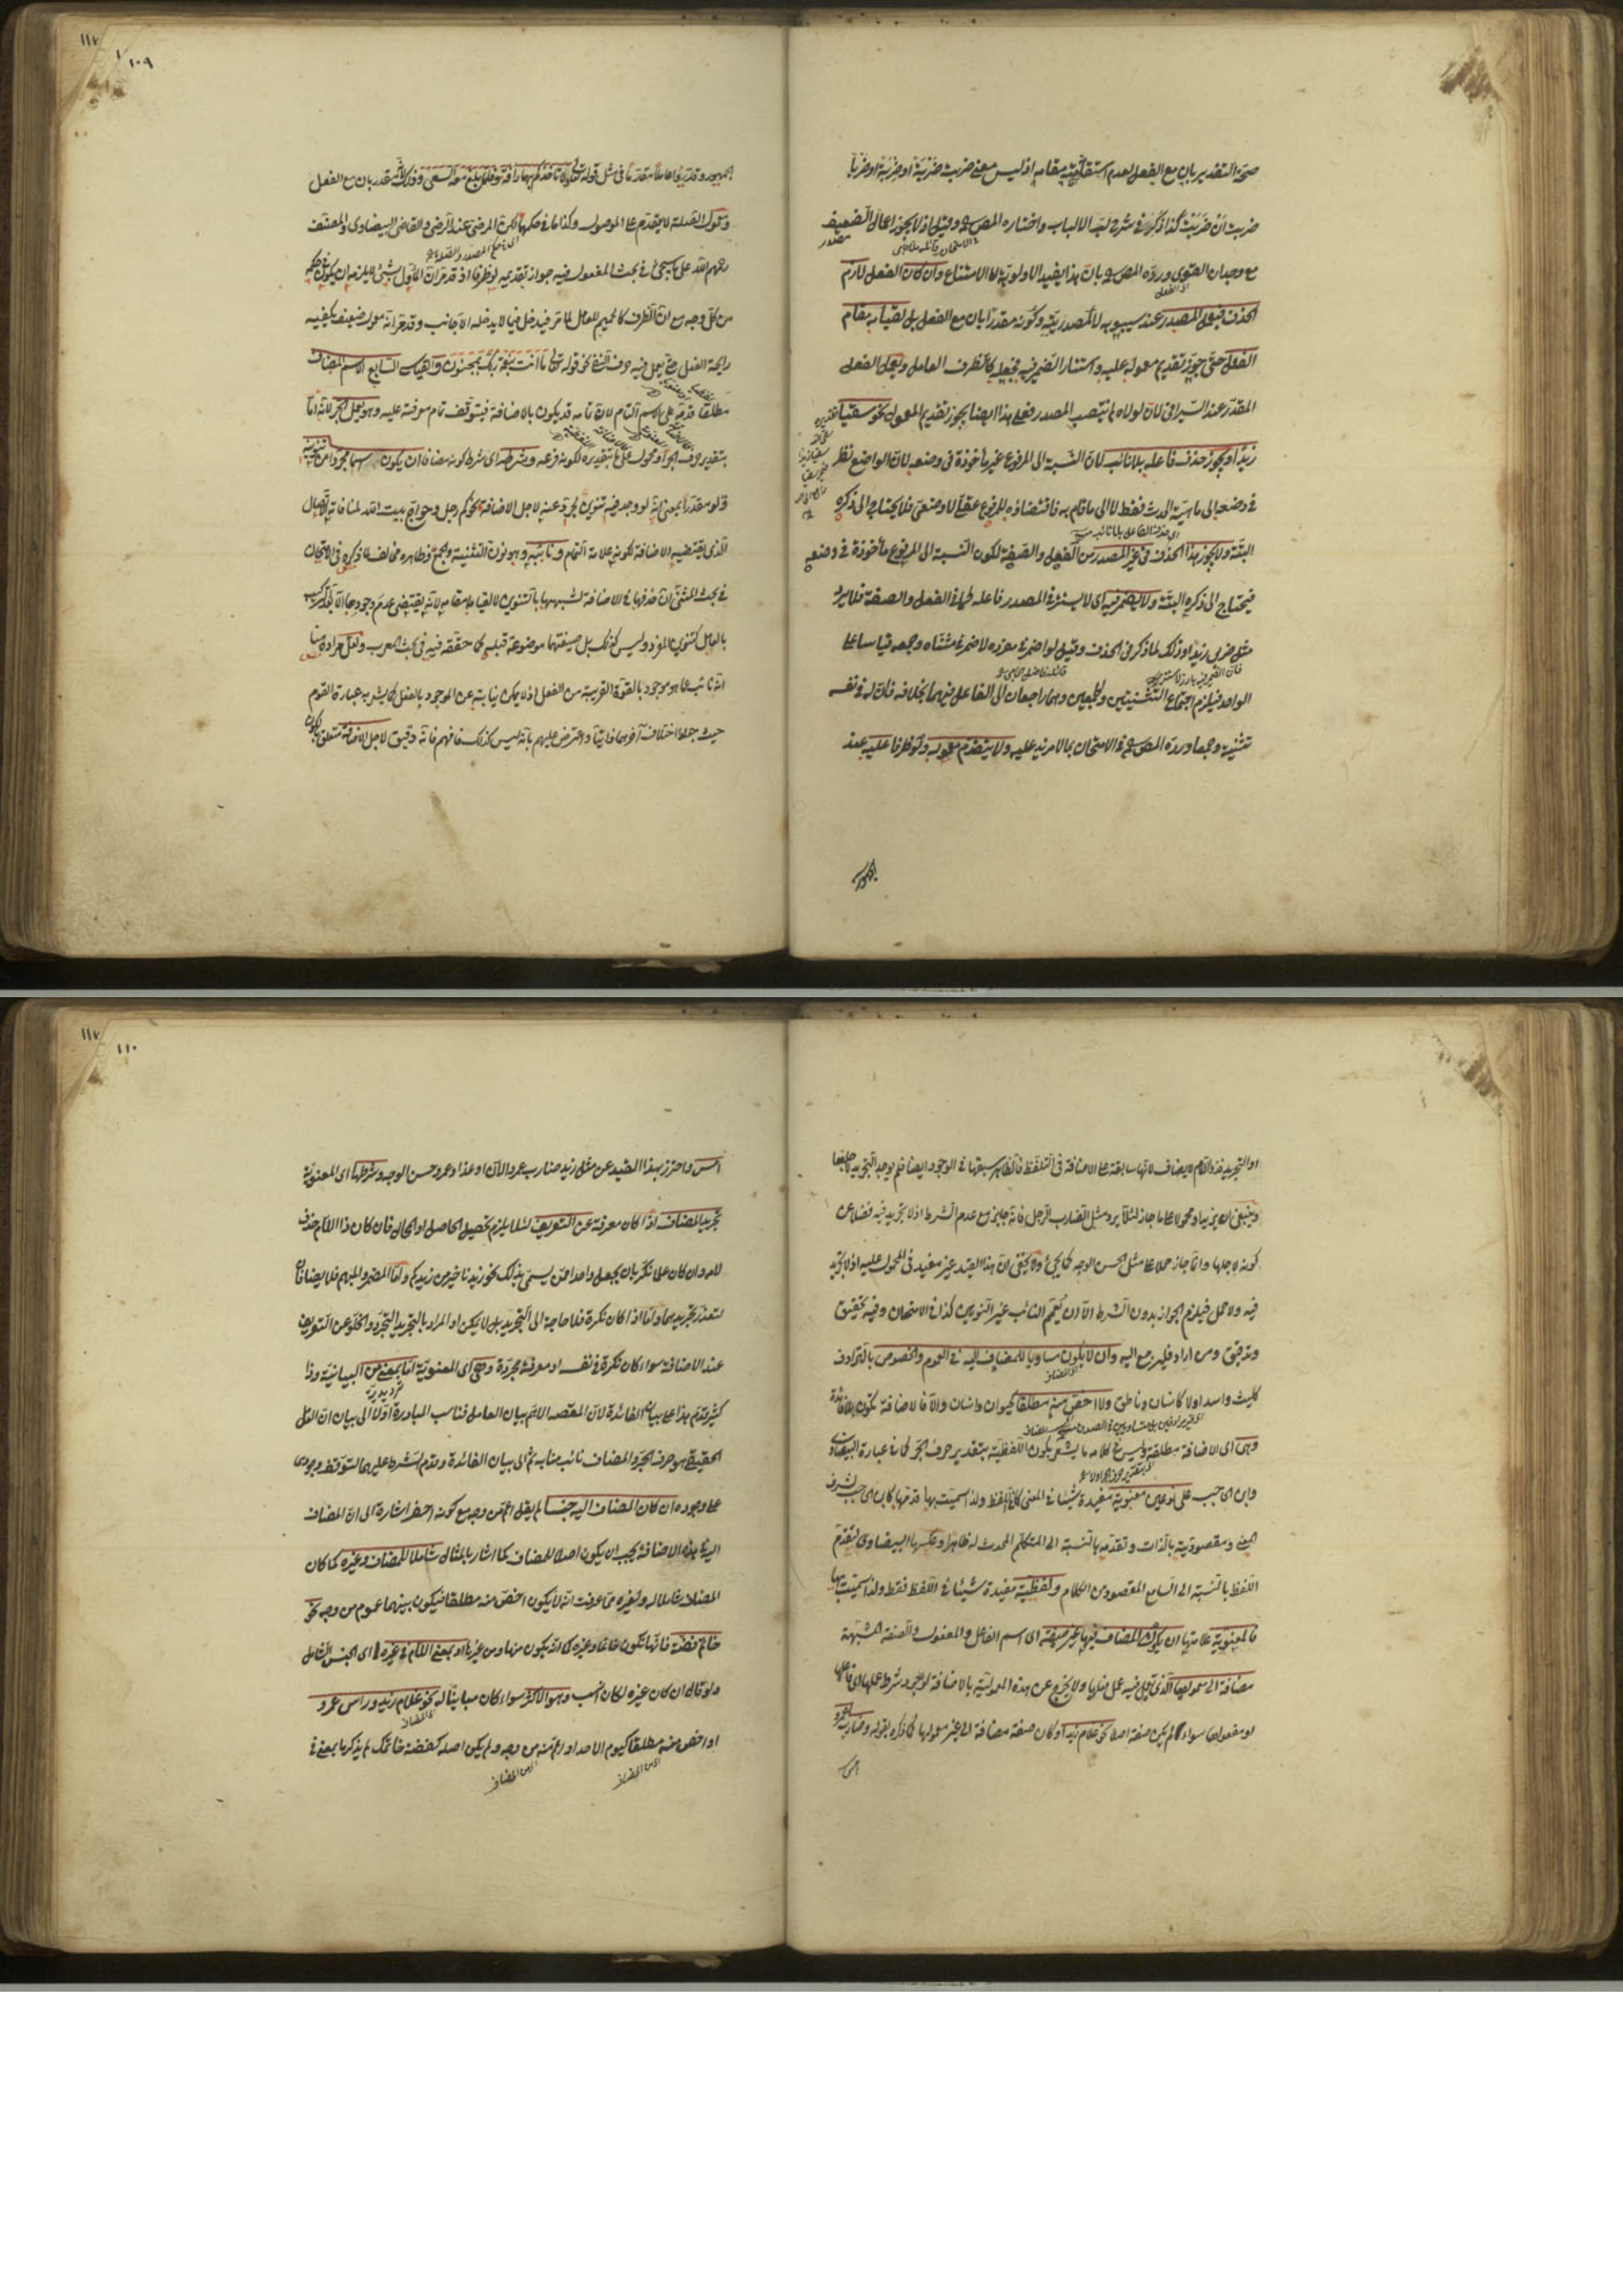 صحة التقدير بان مع الفعل لعدم استقامته مقامه اذ ليس معنى ضربت ضربة او ضربة او ضربا
ضربت ان ضربت كذا ذكره في شرح لب الالباب واختاره المص وقيل اذ لا يجوز اعمال الضعيف
مع وجدان القوى ورده المص بان هذا يفيد الاولوية لا الامتناع وان كان الفعل لازم
الحذف فيعمل المصدر عند سيبويه لا لمصدريته وكونه مقدرا بان مع الفعل بل لقيامه مقام
الفعل حتى جوز تقديم معموله عليه واستتار الضمير فيه فجعله كالظرف العامل ويعمل الفعل
المقدر عند السيرافى لان لولاه لم ينتصب المصدر فعلى هذا ايضا يجوز تقديم المعمول نحو سقيا
زيدا ويجوز حذف فاعله بلا نائب لان النسبة الى المرفوع غير مأخوذة فى وضعه لان الواضع نظر
في وضعه الى ماهية الحدث فقط لا الى ما قام به فاقتضاؤه للمرفوع عقلى لا وضعى فلا يحتاج الى ذكره
اى حذف الفاعل بلا نائب
البتة ولا يجوز هذا الحذف فى غير المصدر من الفعل والصفة لكون النسبة الى المرفوع مأخوذة فى وضعه
فيحتاج الى ذكره البتة ولا يضمر فيه اى لا يستتر فى المصدر فاعله كما فى الفعل والصفة فلا يرد
مثل ضربى زيدا وذلك لما ذكر فى الحذف وقيل لو اضمر فى مفرده لاضمر فى مثناه وجمعه قياسا على
الواحد فيلزم اجتماع التثنيتين والجمعين وهما راجعان الى الفاعل فيهما بخلافه فان له فى نفسه
تثنية وجمعا ورده المص فى الامتحان بما لا مزيد عليه ولا يتقدم معموله ولو ظرفا عليه عند
الجمهور
١١٧
١٠٩
الجمهور وقدروا عاملا مقدما فى مثل قوله تعالى ولا تأخذكم بهما رأفة وفلما بلغ معه السعى وذلك لانه مقدر بان مع الفعل
ومعمول الصلة لا يتقدم على الموصول وكذا ما فى حكمها لكن المرضى عند الرضى والقاضى البيضاوى والمصنف
رحمهم الله على ما سيجئ فى بحث المفعول فيه جواز تقديمه لو ظرفا اذ قد مر ان المأول بشئ لا يلزم ان يكون فى حكمه
من كل وجه مع ان الظرف كالمحرم للعامل لما مر فيدخل فيما لا يدخله الاجانب وقد مر انه معمول ضعيف يكفيه
رايحة الفعل حتى يعمل فيه حرف النفى نحو قوله تعالى ما انت بنعمة ربك بمجنون والقياسى السابع الاسم المضاف
مطلقا قدمه على الاسم التام لان تمامه قد يكون بالاضافة فيتوقف تمام معرفته عليه وهو يعمل الجر لانه اما
بتقدير حرف الجر او محمول على ما بتقديره لكونه فرعه وشرطه اى شرط كونه مضافا ان يكون اسما مجردا من تنوينه
ولو مقدرا بمعنى انه لو وجد فيه تنوين لجرد عنه لاجل الاضافة نحو كم رجل وحواج بيت الله لمنافاته الاتصال
الذى يقتضيه الاضافة لكونه علامة التمام ونائبه وهو نون التثنية والجمع وظاهره مخالف لما ذكره فى الامتحان
فى بحث المثنى ان حذفها فى الاضافة لشبهها بالتنوين لا لقيامها مقامه لانه يقتضى عدم وجودها الا بعد تركيبه
بالعامل كتنوين المفرد وليس كذلك بل صيغتهما موضوعة قبله كما حققه فيه فى بحث المعرب ولعل مراده هنا
انه نائب عما هو موجود بالقوة القريبة من الفعل اذ لا يمكن نيابته عن الموجود بالفعل كما يشير به عبارة القوم
حيث جعلوا اختلاف آخرهما ذاتيا واعترض عليهم بانه ليس كذلك فافهم فانه دقيق لاجل الاضافة متعلق بيكون
او التجريد فذو اللام لا يضاف لانها سابقة على الاضافة فى التلفظ فالظاهر سبقها فى الوجود ايضا فلم يوجد التجريد لاجلها
وينبغى ان يزيد او محمولا على ما جاز لئلا يرد مثل الضارب الرجل فانه جائز مع عدم الشرط اذ لا تجريد فيه فضلا عن
كونه لاجلها وانما جاز حملا على مثل الحسن الوجه كما يجئ ولا يخفى ان هذا القيد غير مفيد فى المحمول عليه اذ لا تجريد
فيه ولا حمل فيلزم الجواز بدون الشرط الا ان يعمم النائب غير التنوين كذا فى الامتحان وفيه تحقيق
وتدقيق ومن اراد فليرجع اليه وان لا يكون مساويا للمضاف اليه فى العموم والخصوص بالترادف
كليث واسد او لا كانسان وناطق ولا اخص منه مطلقا كحيوان وانسان والا فالاضافة تكون بلا فائدة
وهى اى الاضافة مطلقة وليس فى كلامه ما يشعر بكون اللفظية بتقدير حرف الجر كما فى عبارة البيضاوى
على نوعين معنوية مفيدة شيئا فى المعنى كما فى اللفظ ولذا سميت بها قدمها
المعنى ومقصوديته بالذات وتقدمه بالنسبة الى المتكلم المحدث له ظاهرا وعكسها البيضاوى لتقدم
اللفظ بالنسبة الى السامع المقصود من الكلام ولفظية مفيدة شيئا فى اللفظ فقط ولذا سميت بها
فالمعنوية علامتها ان يكون المضاف فيها غير صفة اى اسم الفاعل والمفعول والصفة المشبهة
مضافة الى معمولها الذى تعمل فيه عمل فعلها ولا يخرج عن هذه المعمولية بالاضافة لوجود شرط عملها اى فاعلها
او مفعولها سواء لم يكن صفة اصلا نحو غلام زيد او كان صفة مضافة الى غير معمولها كما ذكره بقوله وضارب عمرو
امس
١١٧
١١٠
امس واحترز بهذا القيد عن مثل زيد ضارب عمرو الآن او غدا وعمرو حسن الوجه وشرطها اى المعنوية
تجريد المضاف اذا كان معرفة عن التعريف لئلا يلزم تحصيل الحاصل او المحال فان كان ذا اللام حذف
لامه وان كان علما نكر بان يجعل واحدا ممن يسمى بذلك نحو زيدنا خير من زيدكم واما المضمر والمبهم فلا يضافان
لتعذر تجريدهما واما اذا كان نكرة فلا حاجة الى التجريد بل لا يمكن او المراد بالتجريد التجرد والخلو عن التعريف
عند الاضافة سواء كان نكرة فى نفسه او معرفة مجردة وهى اى المعنوية اما بمعنى من البيانية وذا
كثير قدم هذا على بيان الفائدة لان المقصد الاهم بيان العامل فناسب المبادرة اولا الى بيان ان العامل
الحقيقى هو حرف الجر والمضاف نائب منابه ثم الى بيان الفائدة وقدم الشرط عليهما لتوقف وجودهما
على وجوده ان كان المضاف اليه جنسا لم يقل اعم من وجه مع كونه اخصر اشارة الى ان المضاف
اليه فى هذه الاضافة يجب ان يكون اصلا للمضاف كما اشار بالمثال شاملا للمضاف وغيره كما كان
المضاف شاملا له ولغيره مما عرفت انه لا يكون اخص منه مطلقا فيكون بينهما عموم من وجه نحو
خاتم فضة فانها تكون خاتما وغيره كما انه يكون منها ومن غيرها او بمعنى اللام فى غيره اى الجنس الشامل
ولو قال ان كان غيره لكان انسب وهو الاكثر سواء كان مباينا له نحو غلام زيد وراس عمرو
او اخص منه مطلقا كيوم الاحد او اعم منه من وجه ولم يكن اصله كفضة خاتمك لم يذكرها بمعنى فى